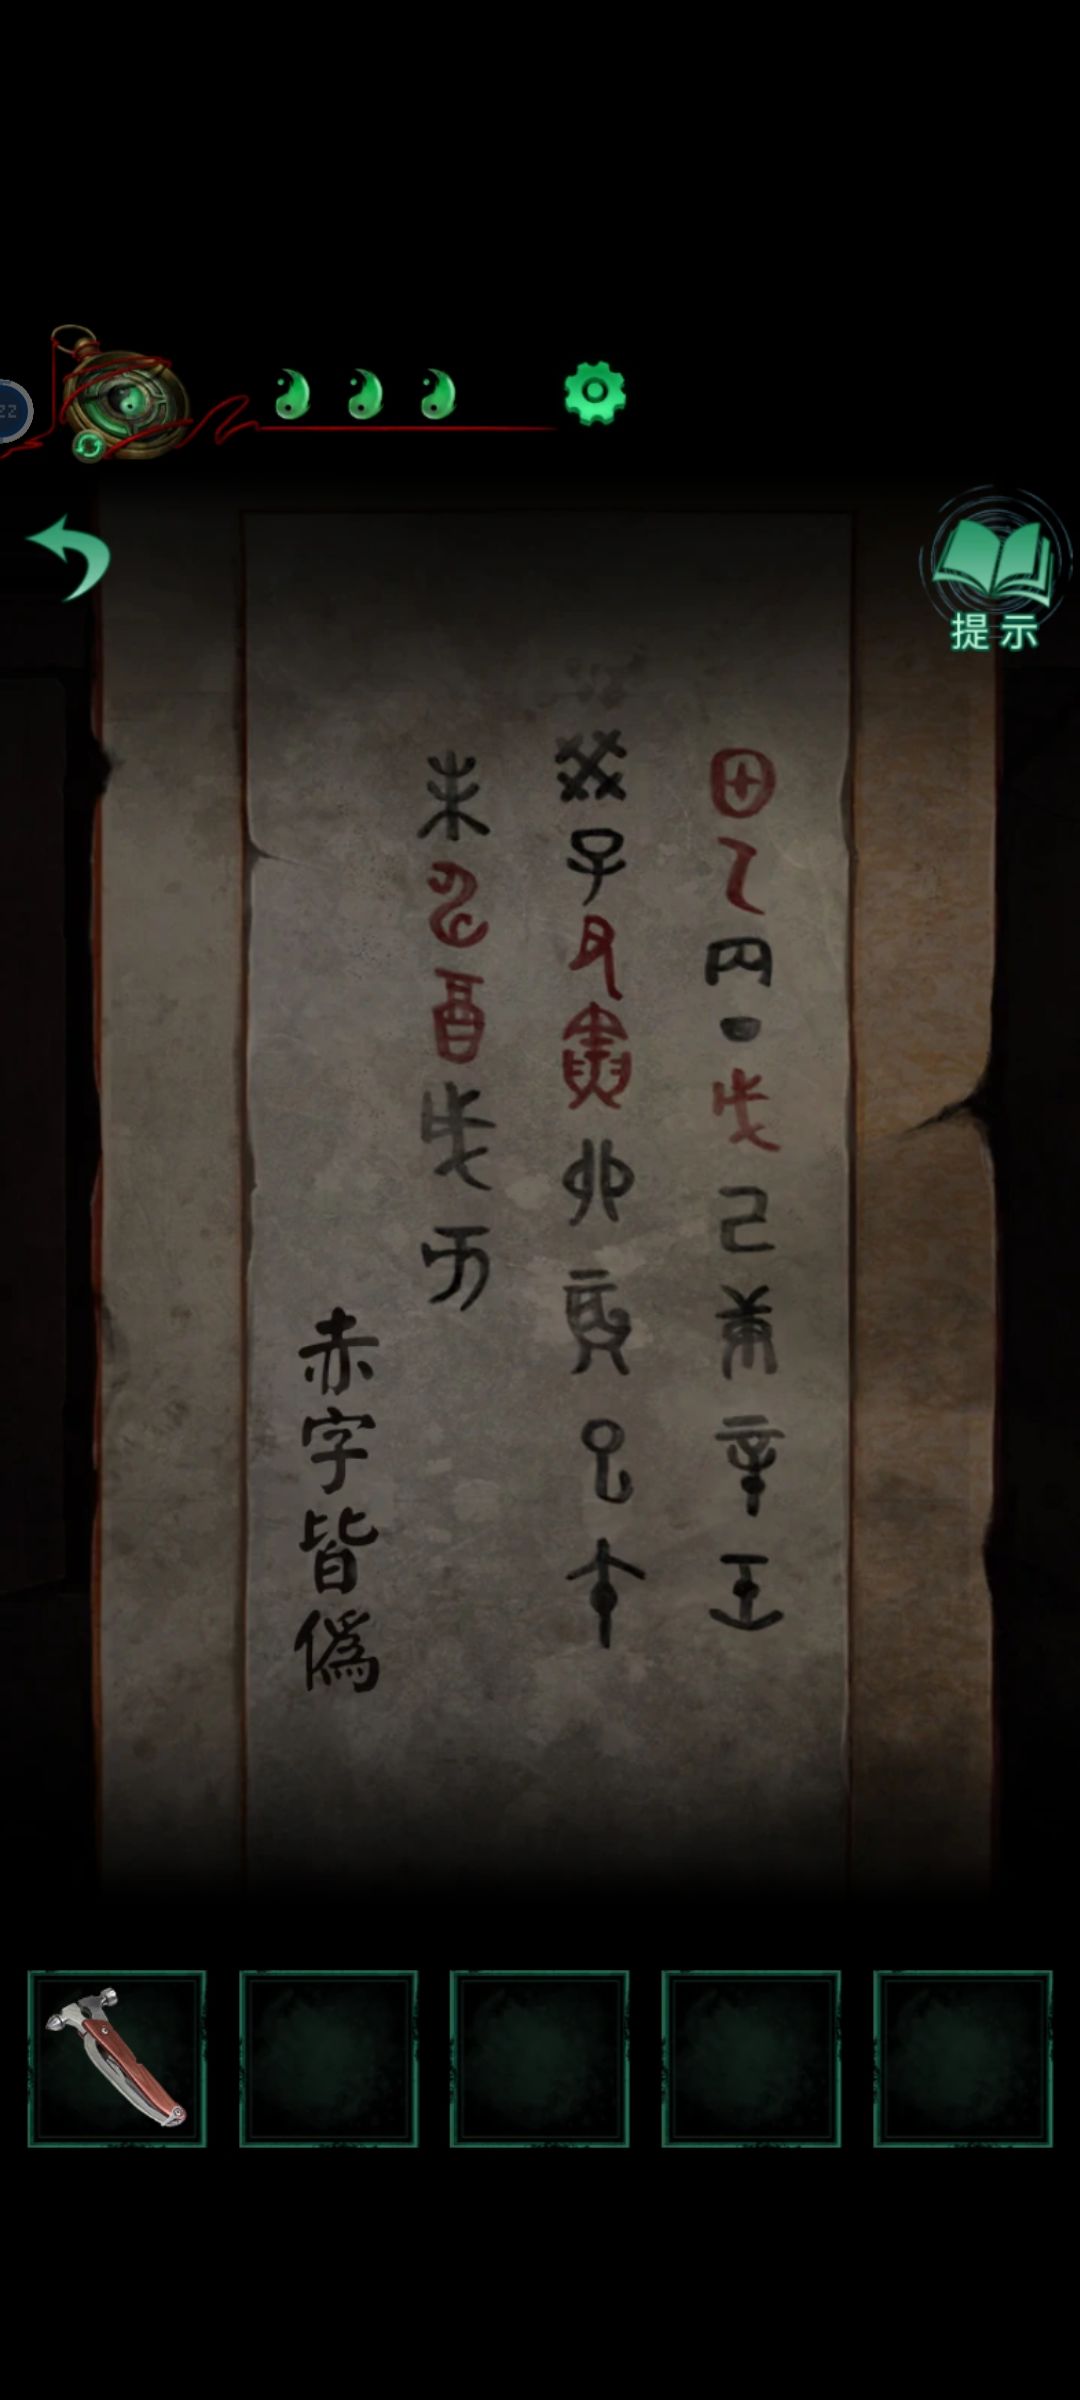 提示
田乙丙丁戊己庚辛壬
癸子丑寅卯辰巳午
未申酉戌亥
赤字皆偽